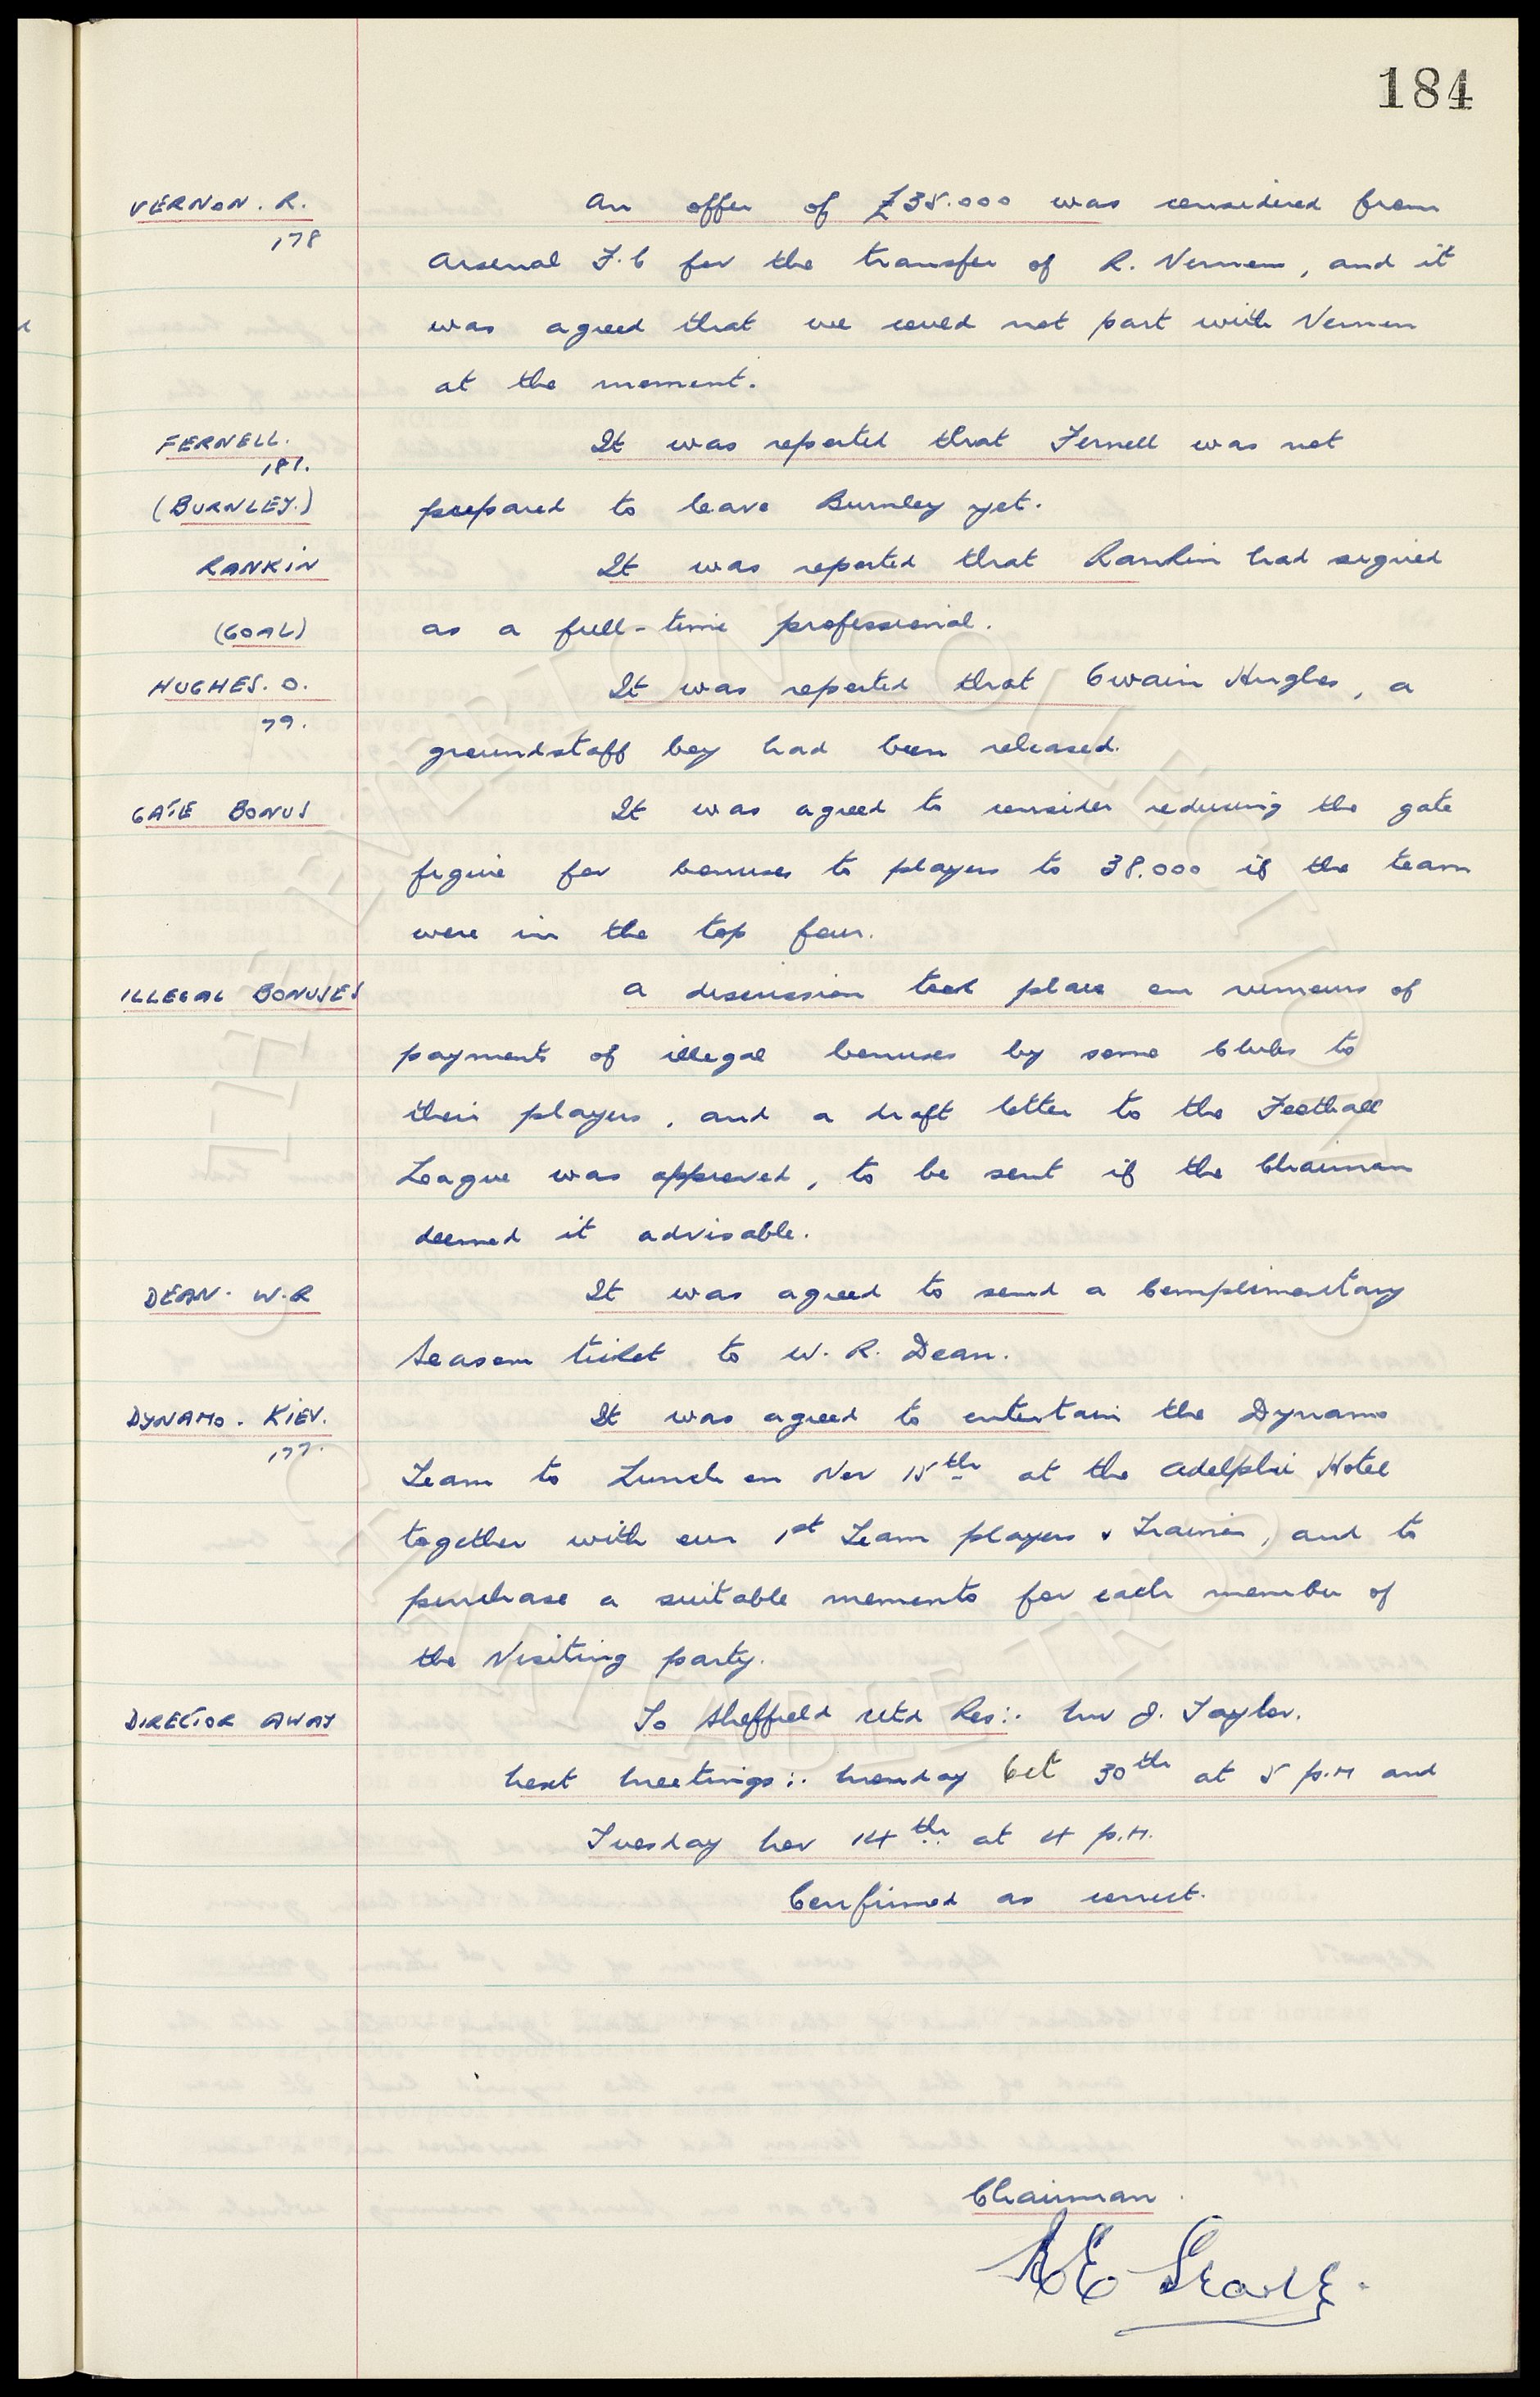 184
VERNON. R. An offer of £35.000 was considered from
178
Arsenal F.C for the transfer of R. Vernon, and it
was agreed that we could not part with Vernon
at the moment.
FERNELL. It was reported that Fernell was not
181.
(BURNLEY.) prepared to leave Burnley yet.
RANKIN It was reported that Rankin had signed
(GOAL) as a full-time professional.
HUGHES. O. It was reported that Owain Hughes, a
79.
groundstaff boy had been released.
GATE BONUS It was agreed to consider reducing the gate
figure for bonuses to players to 38.000 if the team
were in the top four.
ILLEGAL BONUSES A discussion took place on rumours of
payments of illegal bonuses by some Clubs to
their players, and a draft letter to the Football
League was approved, to be sent if the Chairman
deemed it advisable.
DEAN. W.R It was agreed to send a Complimentary
Season ticket to W. R. Dean.
DYNAMO. KIEV. It was agreed to entertain the Dynamo
177.
Team to Lunch on Nov 15th at the Adelphi Hotel
together with our 1st Team players & Trainer, and to
purchase a suitable memento for each member of
the Visiting party.
DIRECTOR AWAY To Sheffield Utd Res:. Mr J. Taylor.
Next Meetings:. Monday Oct 30th at 5 p.m and
Tuesday Nov 14th at 4 p.m.
Confirmed as correct.
Chairman.